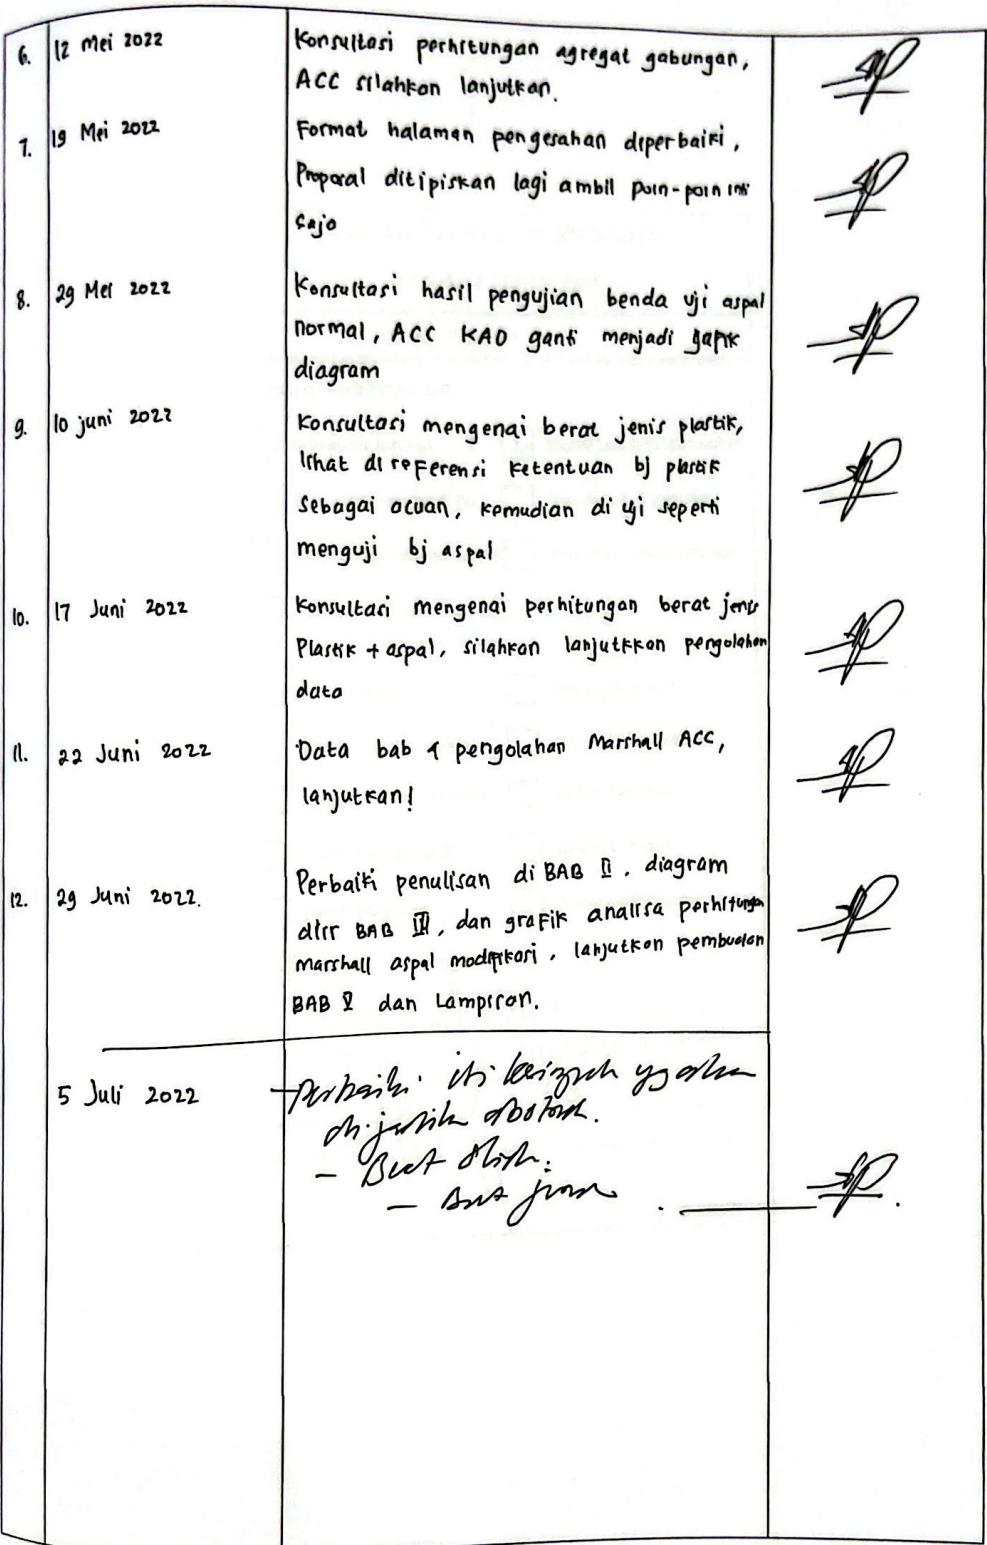 6. 12 Mei 2022 Konsultasi perhitungan agregat gabungan,
ACC silahkan lanjutkan.
7. 19 Mei 2022 Format halaman pengesahan diperbaiki,
Proposal ditipiskan lagi ambil poin-poin inti
saja
8. 29 Mei 2022 Konsultasi hasil pengujian benda uji aspal
normal, ACC KAO ganti menjadi
diagram
9. 10 juni 2022 Konsultasi mengenai berat jenis plastik,
lihat di referensi ketentuan bj plastik
sebagai acuan, kemudian di uji seperti
menguji bj aspal
10. 17 Juni 2022 Konsultasi mengenai perhitungan berat jenis
Plastik + aspal, silahkan lanjutkkan pengolahan
data
11. 22 Juni 2022 Data bab 4 pengolahan Marshall ACC,
lanjutkan!
12. 29 Juni 2022. Perbaiki penulisan di BAB II, diagram
alir BAB III, dan grafik analisa perhitungan
marshall aspal modifikasi, lanjutkan pembuatan
BAB V dan Lampiran.
5 Juli 2022 - Perbaiki
- Buat
-